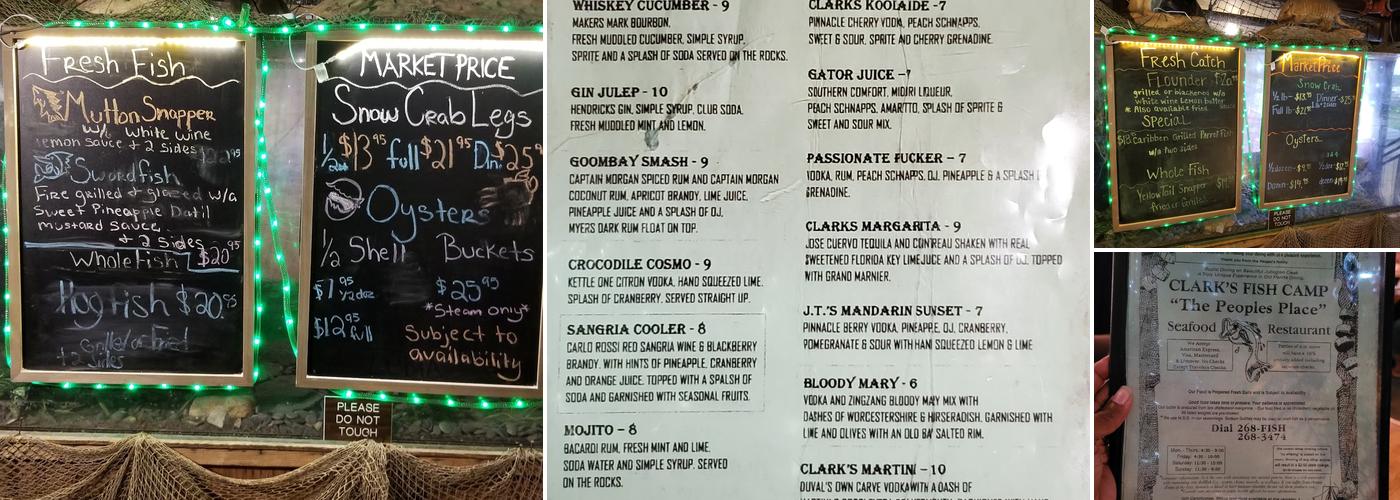 Fresh Fish
Mutton Snapper
w/a White Wine
Lemon Sauce + 2 Sides
Swordfish
Fire grilled & glazed w/a
Sweet Pineapple Datil
mustard Sauce
+ 2 Sides
Whole Fish $20.95
Hog Fish $20.95
Grilled or Fried
+2 Sides
MARKET PRICE
Snow Crab Legs
1/2 $13.95 full $21.95 Din. $25.9
Oysters
1/2 Shell Buckets
$7.95 1/2 doz $25.95
*Steam only*
$12.95 full Subject to
availability
PLEASE
DO NOT
TOUGH
WHISKEY CUCUMBER - 9
MAKERS MARK BOURBON,
FRESH MUDDLED CUCUMBER, SIMPLE SYRUP,
SPRITE AND A SPLASH OF SODA SERVED ON THE ROCKS.
GIN JULEP - 10
HENDRICKS GIN, SIMPLE SYRUP, CLUB SODA,
FRESH MUDDLED MINT AND LEMON.
GOOMBAY SMASH - 9
CAPTAIN MORGAN SPICED RUM AND CAPTAIN MORGAN
COCONUT RUM, APRICOT BRANDY, LIME JUICE,
PINEAPPLE JUICE AND A SPLASH OF OJ,
MYERS DARK RUM FLOAT ON TOP.
CROCODILE COSMO - 9
KETTLE ONE CITRON VODKA, HAND SQUEEZED LIME,
SPLASH OF CRANBERRY, SERVED STRAIGHT UP.
SANGRIA COOLER - 8
CARLO ROSSI RED SANGRIA WINE & BLACKBERRY
BRANDY, WITH HINTS OF PINEAPPLE, CRANBERRY
AND ORANGE JUICE. TOPPED WITH A SPALSH OF
SODA AND GARNISHED WITH SEASONAL FRUITS.
MOJITO - 8
BACARDI RUM, FRESH MINT AND LIME,
SODA WATER AND SIMPLE SYRUP. SERVED
ON THE ROCKS.
CLARKS KOOLAIDE -7
PINNACLE CHERRY VODKA, PEACH SCHNAPPS,
SWEET & SOUR, SPRITE AND CHERRY GRENADINE.
GATOR JUICE -7
SOUTHERN COMFORT, MIDORI LIQUEUR,
PEACH SCHNAPPS, AMARETTO, SPLASH OF SPRITE &
SWEET AND SOUR MIX.
PASSIONATE FUCKER - 7
VODKA, RUM, PEACH SCHNAPPS, OJ, PINEAPPLE & A SPLASH
GRENADINE.
CLARKS MARGARITA - 9
JOSE CUERVO TEQUILA AND CONTREAU SHAKEN WITH REAL
SWEETENED FLORIDA KEY LIMEJUICE AND A SPLASH OF OJ, TOPPED
WITH GRAND MARNIER.
J.T.'S MANDARIN SUNSET - 7
PINNACLE BERRY VODKA, PINEAPPLE, OJ, CRANBERRY,
POMEGRANATE & SOUR WITH HAN SQUEEZED LEMON & LIME
BLOODY MARY - 6
VODKA AND ZINGZANG BLOODY MAY MIX WITH
DASHES OF WORCESTERSHIRE & HIRSERADISH, GARNISHED WITH
LIME AND OLIVES WITH AN OLD BAY SALTED RIM.
CLARK'S MARTINI - 10
DUVAL'S OWN CARVE VODKA WITH A DASH OF
Fresh Catch
Flounder $20
grilled or blackened w/a
white wine Lemon butter
* Also available fried
Special
Caribben Grilled Parrot Fish
w/a two sides
Whole Fish
YellowTail Snapper
fried or Grilled
Market Price
Snow Crab
1/2 lb- $13.95 Dinner-$25
Full lb-
Oysters
1/2 dozen-
Dozen-
PLEASE
DO NOT
TOUGH
Rustic Dining on Beautiful Julington Creek
A Truly Unique Experience in Old Florida Dining
CLARK'S FISH CAMP
"The Peoples Place"
Seafood Restaurant
We Accept
American Express,
Visa, Mastercard
& Discover. No Checks
Except Travelers Checks
Our Food is Prepared Fresh Daily and is Subject to Availability
Good food takes time to prepare. Your patience is appreciated.
Dial 268-FISH
268-3474
Mon. - Thurs. 4:30 - 9:00
Friday: 4:30 - 10:00
Saturday: 11:30 - 10:00
Sunday: 11:30 - 9:00